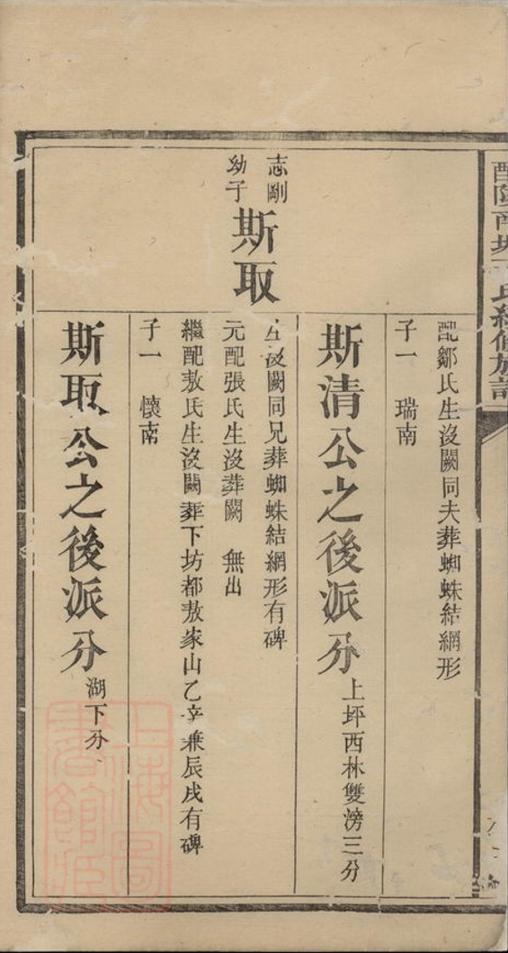 配鄒氏生沒闕同夫葬蜘蛛結網形
子一　瑞南
斯清公之後派分上坪西林雙滂三分
志剛
幼子
斯取
生沒闕同兄葬蜘蛛結網形有碑
元配張氏生沒葬闕　無出
繼配敖氏生沒闕葬下坊都敖家山乙辛兼辰戌有碑
子一　懷南
斯取公之後派分湖下分
上海圖書館藏